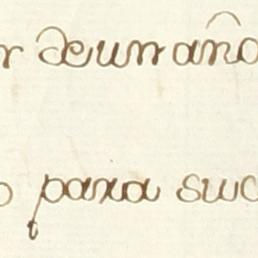 r deun año
o para suc